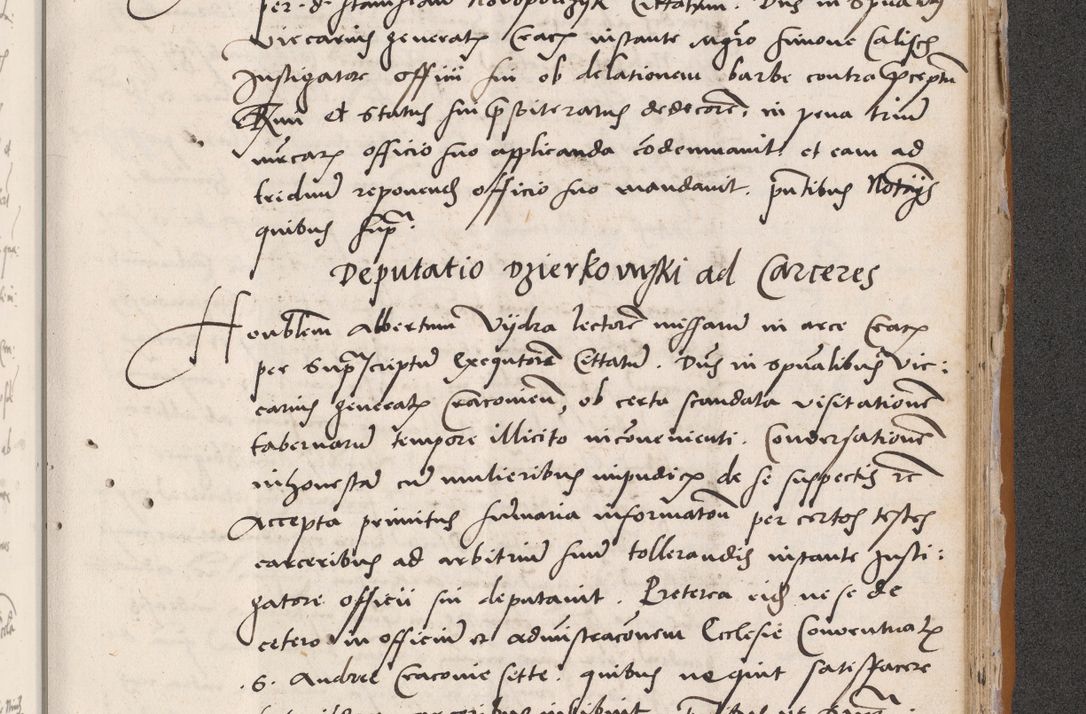 per d Stanislaum Novopolczyk Citatum. Dns in Spualibus
Viccarius generalis Crac instante Mgro Simone Calisch
Instigatore officii sui ob delationem barbe contra preceptum
Et Status sui prespiteratus dedecore, in pena trium
mrcarum officio suo applicanda codemnavit et eam ad
triduum reponend officio suo mandavit. pntibus Notarys
quibus supra
Deputatio Dzierkowyski ad Carceres
Honblem Albertum Vydra lectore missarum in arce Crac
per Suprascriptum Exequtorem Cittatum. Dns in Spualibus Vic:
carius generalis Cracovien, ob certa scandala visitatione
tabernarum tempore illicito inconvenienti. Conversatione
inhonesta cum mulieribus impudicis de se suspectis rem
Accepta primitus sumaria informatione per certos testes
carceribus ad arbitrium suum tollerandis instante Insti:
gatore officii sui deputavit. Preterea eid ne se de
cetero in officium et administracionem Ecclesie Conventualis
S. Andree Cracovie sette. quibus nequit satisfacere